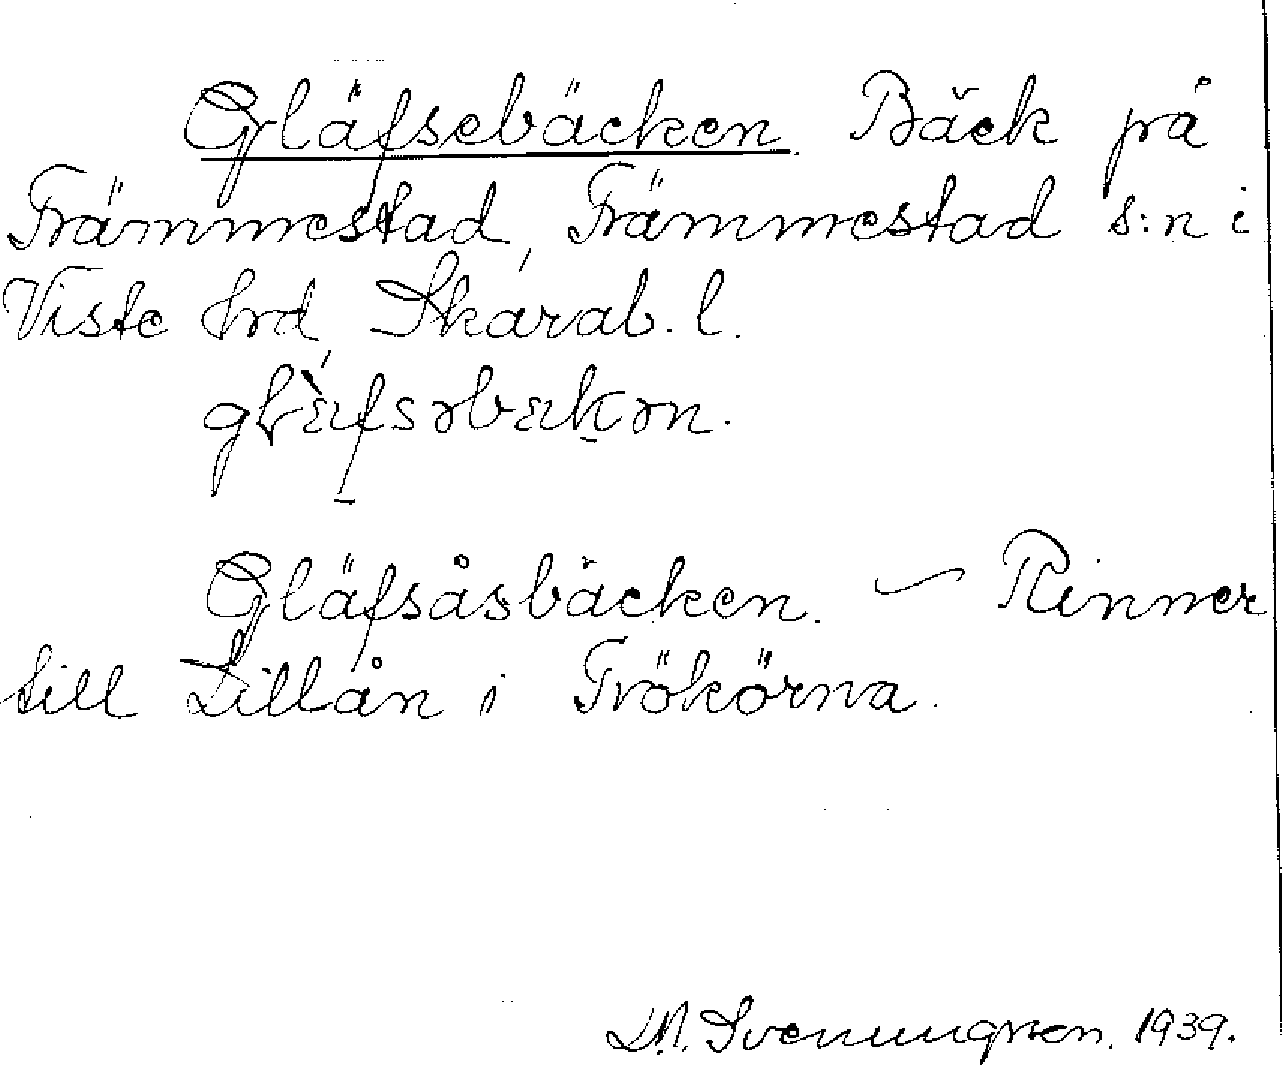 Gläfsebäcken. Bäck på
Främmestad, Främmestad s:n i
Viste hrd, Skarab. l.
glæ̀fsəbækən.
Gläfsåsbäcken. — Rinner
till Lillån i Trökörna.
L.M. Svenungsson. 1939.